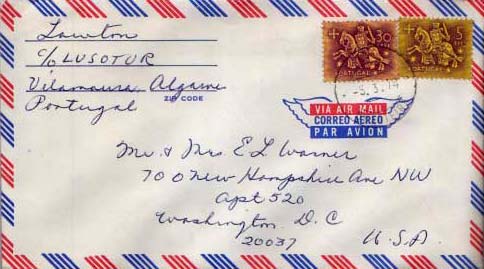 Lawton
C/O LUSOTUR
Vilamoura Algarve
ZIP CODE
Portugal
30
PORTUGAL
5
PORTUGAL
-5.3.74
VIA AIR MAIL
CORREO AEREO
PAR AVION
Mr & Mrs E L Warner
700 New Hampshire Ave NW
Apt 520
Washington D.C
20037
U.S.A.